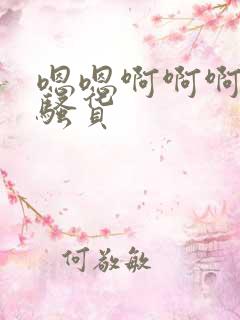 嗯嗯啊啊啊
骚货
何敬敏